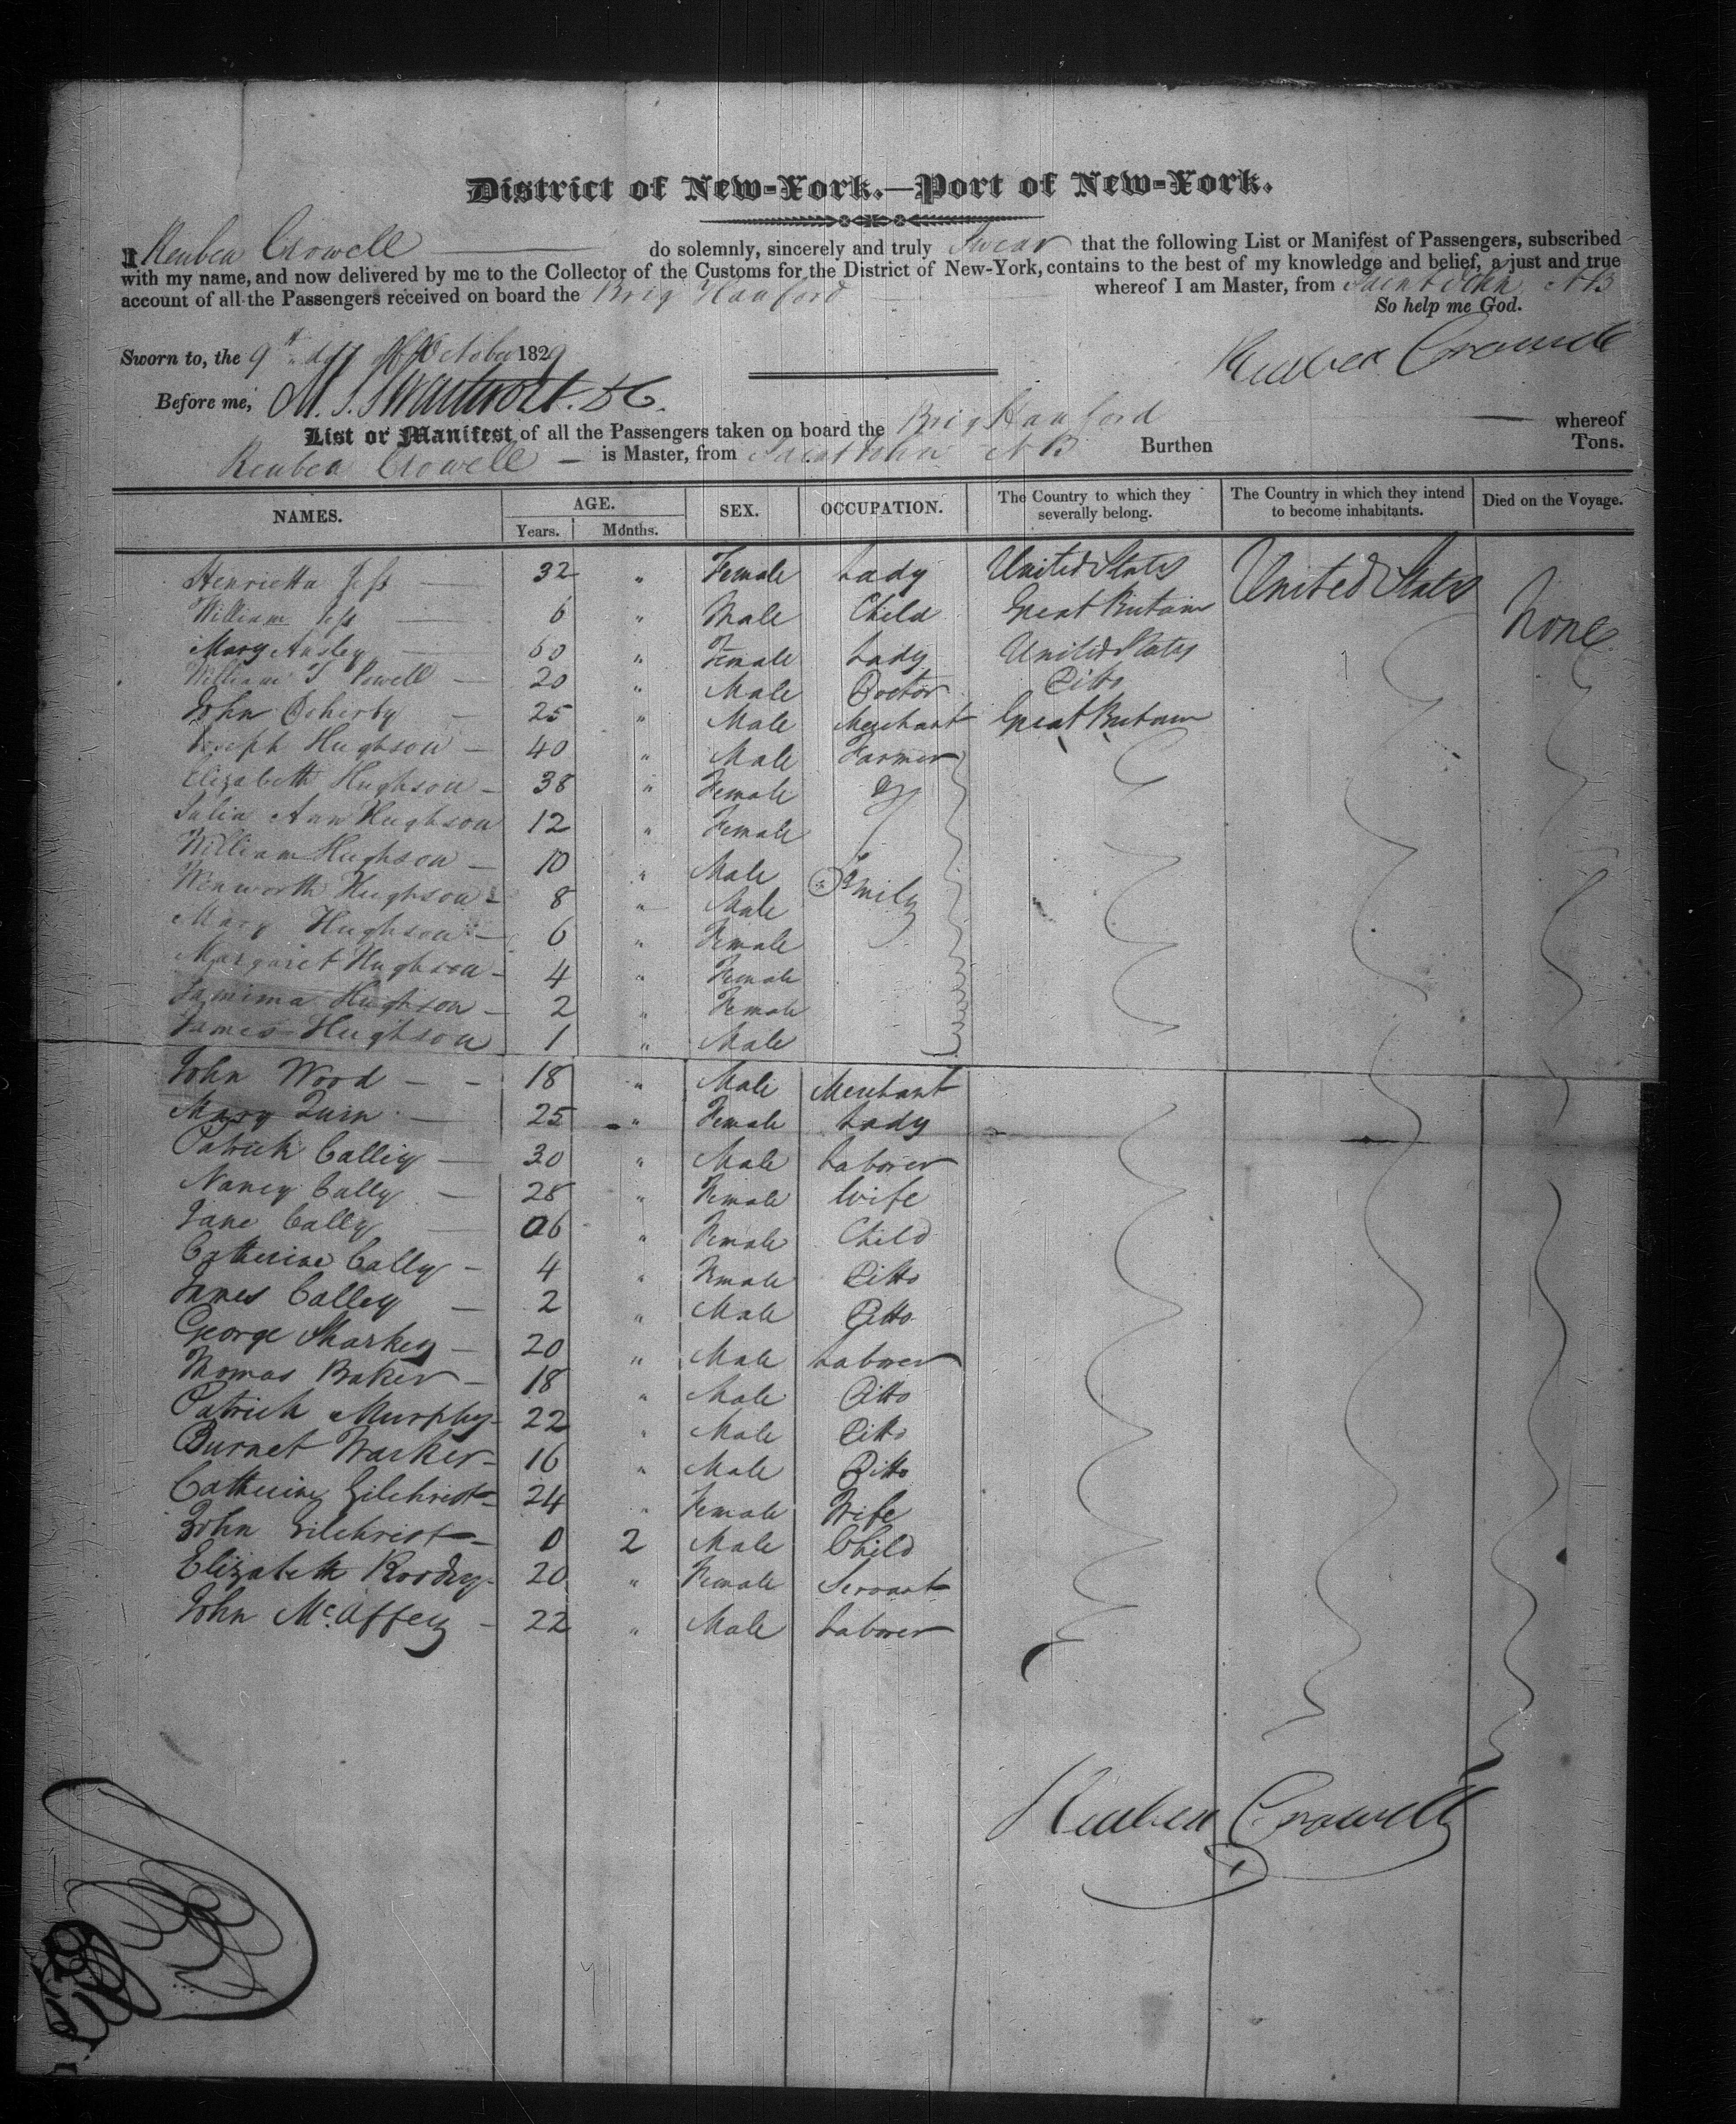 District of New-York.—Port of New-York.
I Reuben Crowell do solemnly, sincerely and truly Swear that the following List or Manifest of Passengers, subscribed
with my name, and now delivered by me to the Collector of the Customs for the District of New-York, contains to the best of my knowledge and belief, a just and true
account of all the Passengers received on board the Brig Hanford whereof I am Master, from Saint John NB
So help me God.
Sworn to, the 9th day of October 1829
Reuben Crowell
Before me, M. S. Swartwout. D C.
List or Manifest of all the Passengers taken on board the Brig Hanford whereof
Reuben Crowell — is Master, from Saint John NB Burthen Tons.
NAMES. AGE. Years. Months. SEX. OCCUPATION. The Country to which they severally belong. The Country in which they intend to become inhabitants. Died on the Voyage.
Henrietta Jess — 32 " Female Lady United States United States None
William Jess — 6 " Male Child Great Britain
Mary Ansley — 60 " Female Lady United States
William T Powell — 20 " Male Doctor Ditto
John Doherty — 25 " Male Merchant Great Britain
Joseph Hughson — 40 " Male Farmer
Elizabeth Hughson — 38 " Female &
Julia Ann Hughson 12 " Female
William Hughson — 10 " Male
Wenworth Hughson 8 " Male Family
Mary Hughson — 6 " Female
Margaret Hughson - 4 " Female
Jamima Hughson - 2 " Female
James Hughson 1 " Male
John Wood - - 18 " Male Merchant
Mary Quin — 25 " Female Lady
Patrick Calley — 30 " Male Laborer
Nancy Cally — 28 " Female Wife
Jane Cally — 06 " Female Child
Catherine Cally - 4 " Female Ditto
James Calley — 2 " Male Ditto
George Sharkey — 20 " Male Laborer
Thomas Baker - 18 " Male Ditto
Patrick Murphy - 22 " Male Ditto
Burnet Warker - 16 " Male Ditto
Catherine Gilchrist - 24 " Female Wife
John Gilchrist - 0 2 Male Child
Elizabeth 20 " Female Servant
John McAffey - 22 " Male Laborer
Reuben Crowell